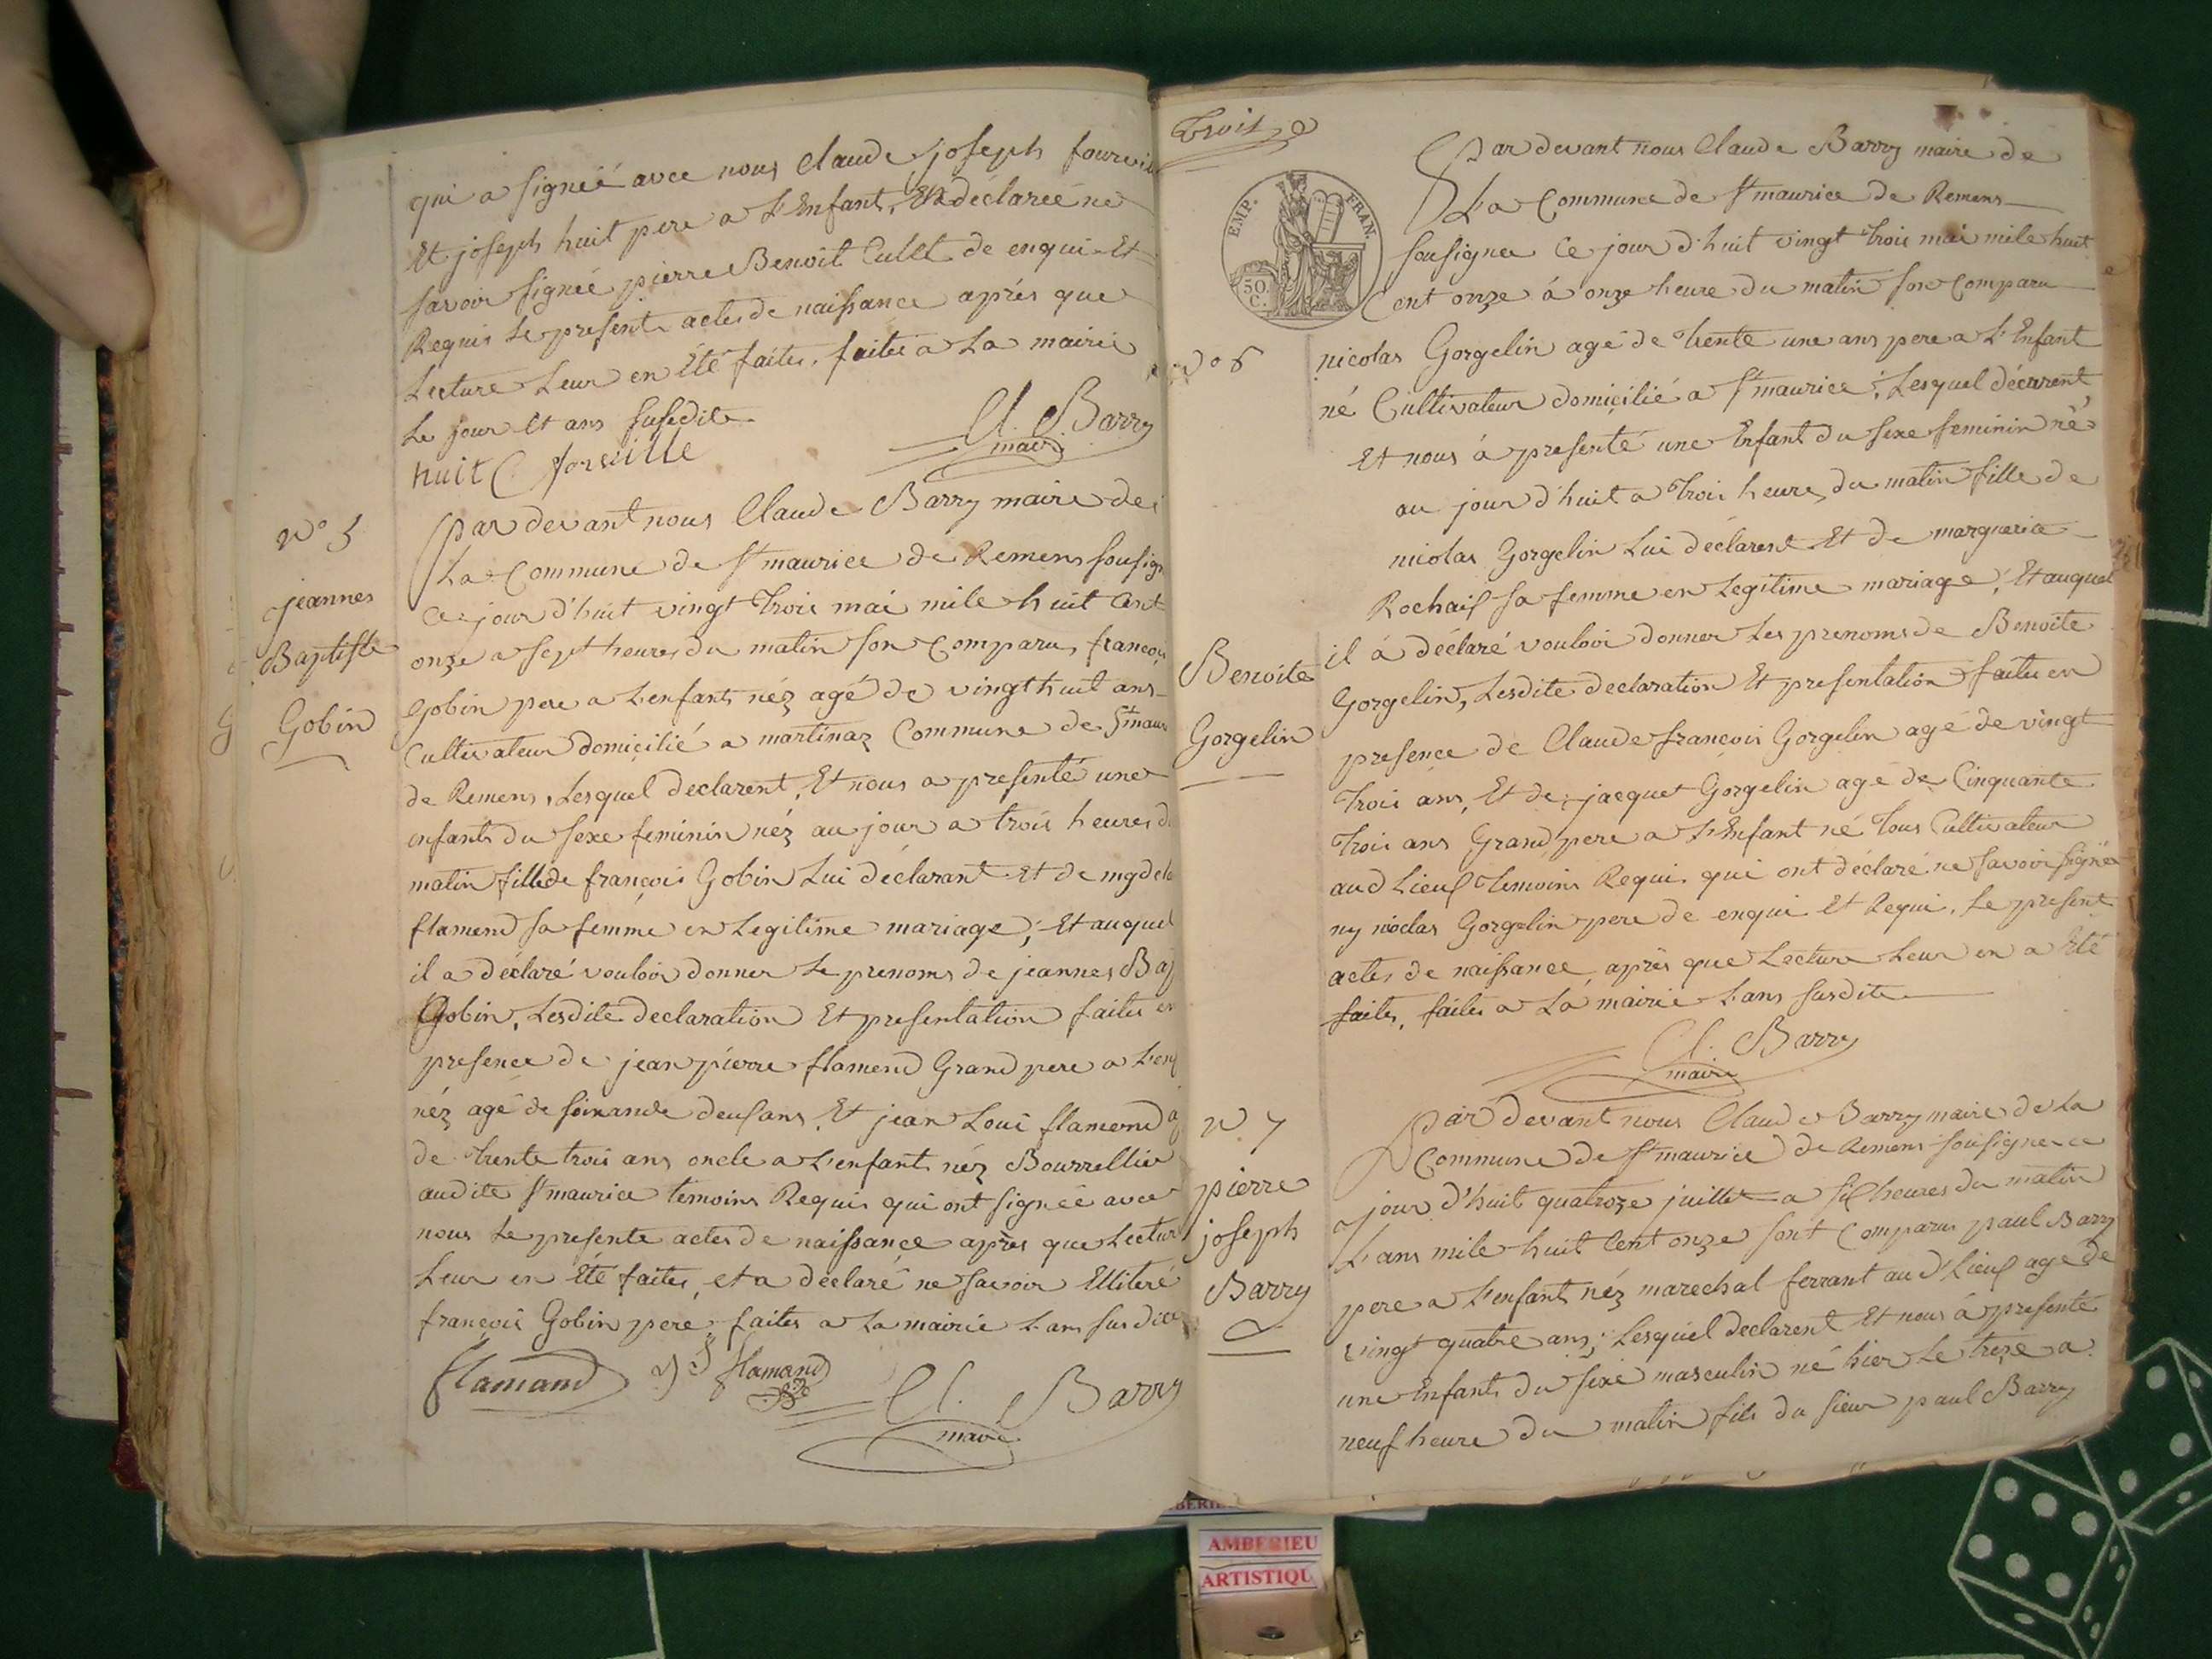 qui a signéé avec nous Claude joseph
Et joseph huit pere a L'Enfant, déclaréé ne
savoir signéé pierre Benoit Cullet de enqui Et
Requis Le present actes de naissance aprés que
Lecture Leur en Eté faites, faites a La mairie
Le jour Et ans susedite
huit C forville
Cl. Barry
maire
N° 5
jeannes
Baptiste
Gobin
Par devant nous Claude Barry maire de
La Commune de St maurice de Remens sousign
Ce jour d'huit vingt trois mai mile huit Cent
onze a sept heures du matin son Comparus françois
Gobin pere a L'enfant néz agé de vingt huit ans
Cultivateur domicilié a martinaz Commune de St maur
de Remens, Lesquel declarent, Et nous a presenté une
enfants du sexe feminin néz au jour a trois heures d
matin fille de françois Gobin Lui déclarant Et de mgdel
flamend sa femme en Legitime mariage, Et auquel
il a déclaré vouloir donner Le prenoms de jeannes Bap
Gobin, Lesdite declaration Et presentation faites en
presence de jean pierre flamend Grand pere a L'enf
néz agé de soixande deux ans, Et jean Loui flamend a
de trente trois ans oncle a L'enfant néz Bourrellier
audite St maurice temoins Requis qui ont signéé avec
nous Le presente actes de naissance après que Lectur
Leur en Eté faites, et a déclaré ne savoir Ellitéré
françois Gobin pere, faites a La mairie L'ans susdite
flamand
flamand
Cl. Barry
maire
Trois
EMP. FRAN.
50 C.
Par devant nous Claude Barry maire de
La Commune de St maurice de Remens
sousignee Ce jour d'huit vingt trois mai mile huit
Cent onze á onze heure du matin son Comparu
N° 6
nicolas Gorgelin agé de trente une ans pere a L'Enfant
né Cultivateur domicilié a St maurice, Lesquel décarent
Et nous á presenté une Enfant du sexe feminin né
au jour d'huit a trois heures du matin fille de
nicolas Gorgelin Lui déclarent Et de marguerite
Rochaix sa femme en Legitime mariage, Et auquel
Benoite
Gorgelin
il á déclaré vouloir donner Les prenoms de Benoite
Gorgelin, Lesdite declaration Et presentation faites en
presence de Claude françois Gorgelin agé de vingt
trois ans, Et de jacques Gorgelin agé de Cinquante
trois ans Grand pere a L'Enfant né tous Cultivateur
aud Lieux temoins Requis qui ont déclaré ne savoir signée
ny nicolas Gorgelin pere de enqui Et Requi, Le present
actes de naissance, aprés que Lecture Leur en a Eté
faites, faites a La mairie L'ans susdite
Cl. Barry
maire
N 7
pierre
joseph
Barry
Par devant nous Claude Barry maire de La
Commune de St maurice de Remens sousignee ce
jour d'huit quatorze juillet a six heures du matin
L'ans mile huit Cent onze sont Comparus paul Barry
pere a L'enfant néz marechal ferrant aud Lieux agé de
vingt quatre ans, Lesquiel declarent Et nous á presenté
une Enfants du sexe masculin né hier Le treze a
neuf heure du matin fils du sieur paul Barry
AMBERIEU
ARTISTIQU